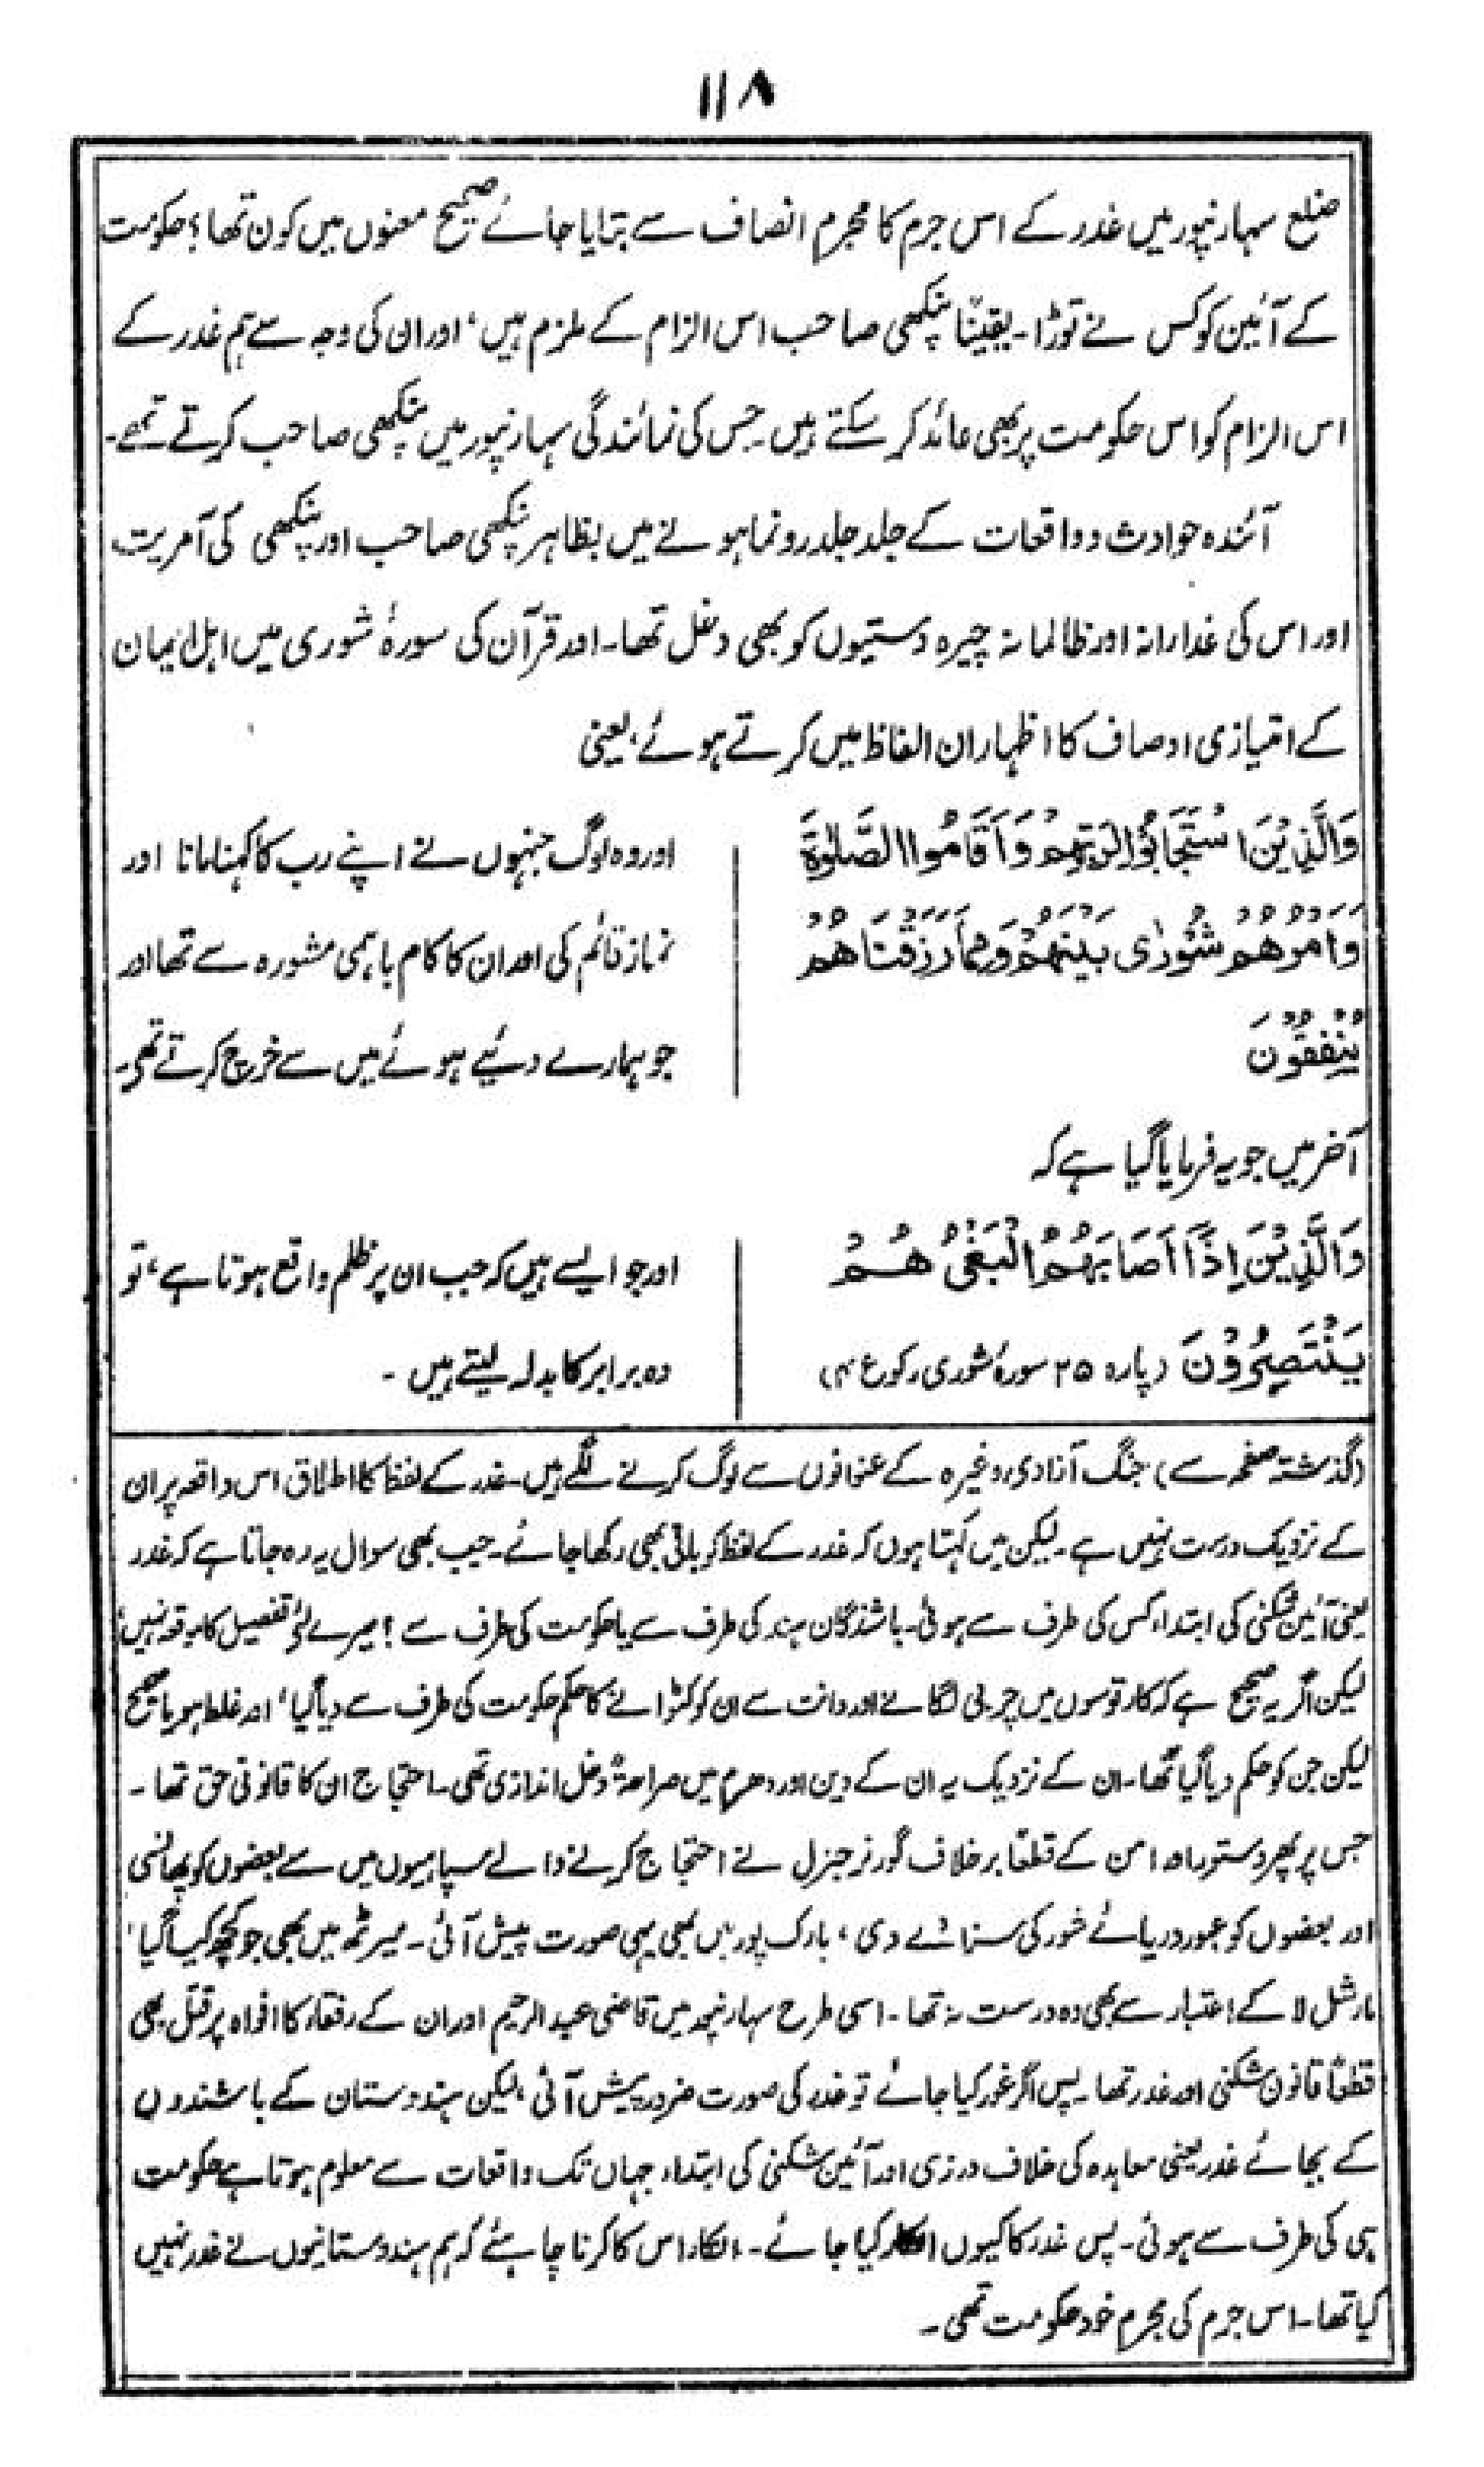 ۱۱۸
ضلع سہارنپور میں غدر کے اس جرم کا مجرم انصاف سے بتایا جائے صحیح معنوں میں کون تھا؟ حکومت
کے آئین کو کس نے توڑا۔ یقیناً پنکھی صاحب اس الزام کے ملزم ہیں، اور ان کی وجہ سے ہم غدر کے
اس الزام کو اس حکومت پر بھی عائد کر سکتے ہیں۔ جس کی نمائندگی سہارنپور میں پنکھی صاحب کرتے تھے۔
آئندہ حوادث و واقعات کے جلد جلد رونما ہونے میں بظاہر پنکھی صاحب اور پنکھی کی آمریت
اور اس کی غدارانہ اور ظالمانہ چیرہ دستیوں کو بھی دخل تھا۔ اور قرآن کی سورۂ شوری میں اہل ایمان
کے امتیازی اوصاف کا اظہار ان الفاظ میں کرتے ہوئے، یعنی
وَالَّذِيْنَ اسْتَجَابُوْا لِرَبِّهِمْ وَاَقَامُوا الصَّلٰوةَ
وَاَمْرُهُمْ شُوْرٰى بَيْنَهُمْ وَمِمَّا رَزَقْنَاهُمْ
يُنْفِقُوْنَ
اور وہ لوگ جنہوں نے اپنے رب کا کہنا مانا اور
نماز قائم کی اور ان کا کام باہمی مشورہ سے تھا اور
جو ہمارے دئیے ہوئے میں سے خرچ کرتے تھے۔
آخر میں جو یہ فرمایا گیا ہے کہ
وَالَّذِيْنَ اِذَا اَصَابَهُمُ الْبَغْىُ هُمْ
يَنْتَصِرُوْنَ (پارہ ۲۵ سورۂ شوری، رکوع ۴)
اور جو ایسے ہیں کہ جب ان پر ظلم واقع ہوتا ہے، تو
وہ برابر کا بدلہ لیتے ہیں ۔
(گذشتہ صفحہ سے) جنگ آزادی وغیرہ کے عنوانوں سے لوگ کرنے لگے ہیں۔ غدر کے لفظ کا اطلاق اس واقعہ پر ان
کے نزدیک درست نہیں ہے۔ لیکن میں کہتا ہوں کہ غدر کے لفظ کو باقی بھی رکھا جائے۔ جب بھی سوال یہ رہ جاتا ہے کہ غدر
یعنی آئین شکنی کی ابتداء کس کی طرف سے ہوئی۔ باشندگان ہند کی طرف سے یا حکومت کی طرف سے ؟ میرے لئے تفصیل کا موقعہ نہیں،
لیکن اگر یہ صحیح ہے کہ کارتوسوں میں چربی لگانے اور دانت سے ان کو کٹوانے کا حکم حکومت کی طرف سے دیا گیا، اور غلط ہو یا صحیح
لیکن جن کو حکم دیا گیا تھا۔ ان کے نزدیک یہ ان کے دین اور دھرم میں صراحۃً دخل اندازی تھی۔ احتجاج ان کا قانونی حق تھا ۔
جس پر پھر دستور راہ امن کے قطعاً برخلاف گورنر جنرل نے احتجاج کرنے والے سپاہیوں میں سے بعضوں کو پھانسی
اور بعضوں کو عبور دریائے شور کی سزا دے دی، بارک پور میں بھی یہی صورت پیش آئی۔ میرٹھ میں بھی جو کچھ کیا گیا،
مارشل لا کے اعتبار سے بھی وہ درست نہ تھا ۔ اسی طرح سہارنپور میں قاضی عبد الرحیم اور ان کے رفقاء کا افواہ پر قتل بھی
قطعاً قانون شکنی اور غدر تھا۔ پس اگر غور کیا جائے تو غدر کی صورت ضرور پیش آئی، لیکن ہندوستان کے باشندوں
کے بجائے غدر یعنی معاہدہ کی خلاف ورزی اور آئین شکنی کی ابتداء جہاں تک واقعات سے معلوم ہوتا ہے حکومت
ہی کی طرف سے ہوئی۔ پس غدر کا کیوں انکار کیا جائے۔ انکار اس کا کرنا چاہئے کہ ہم ہندوستانیوں نے غدر نہیں
کیا تھا۔ اس جرم کی مجرم خود حکومت تھی ۔